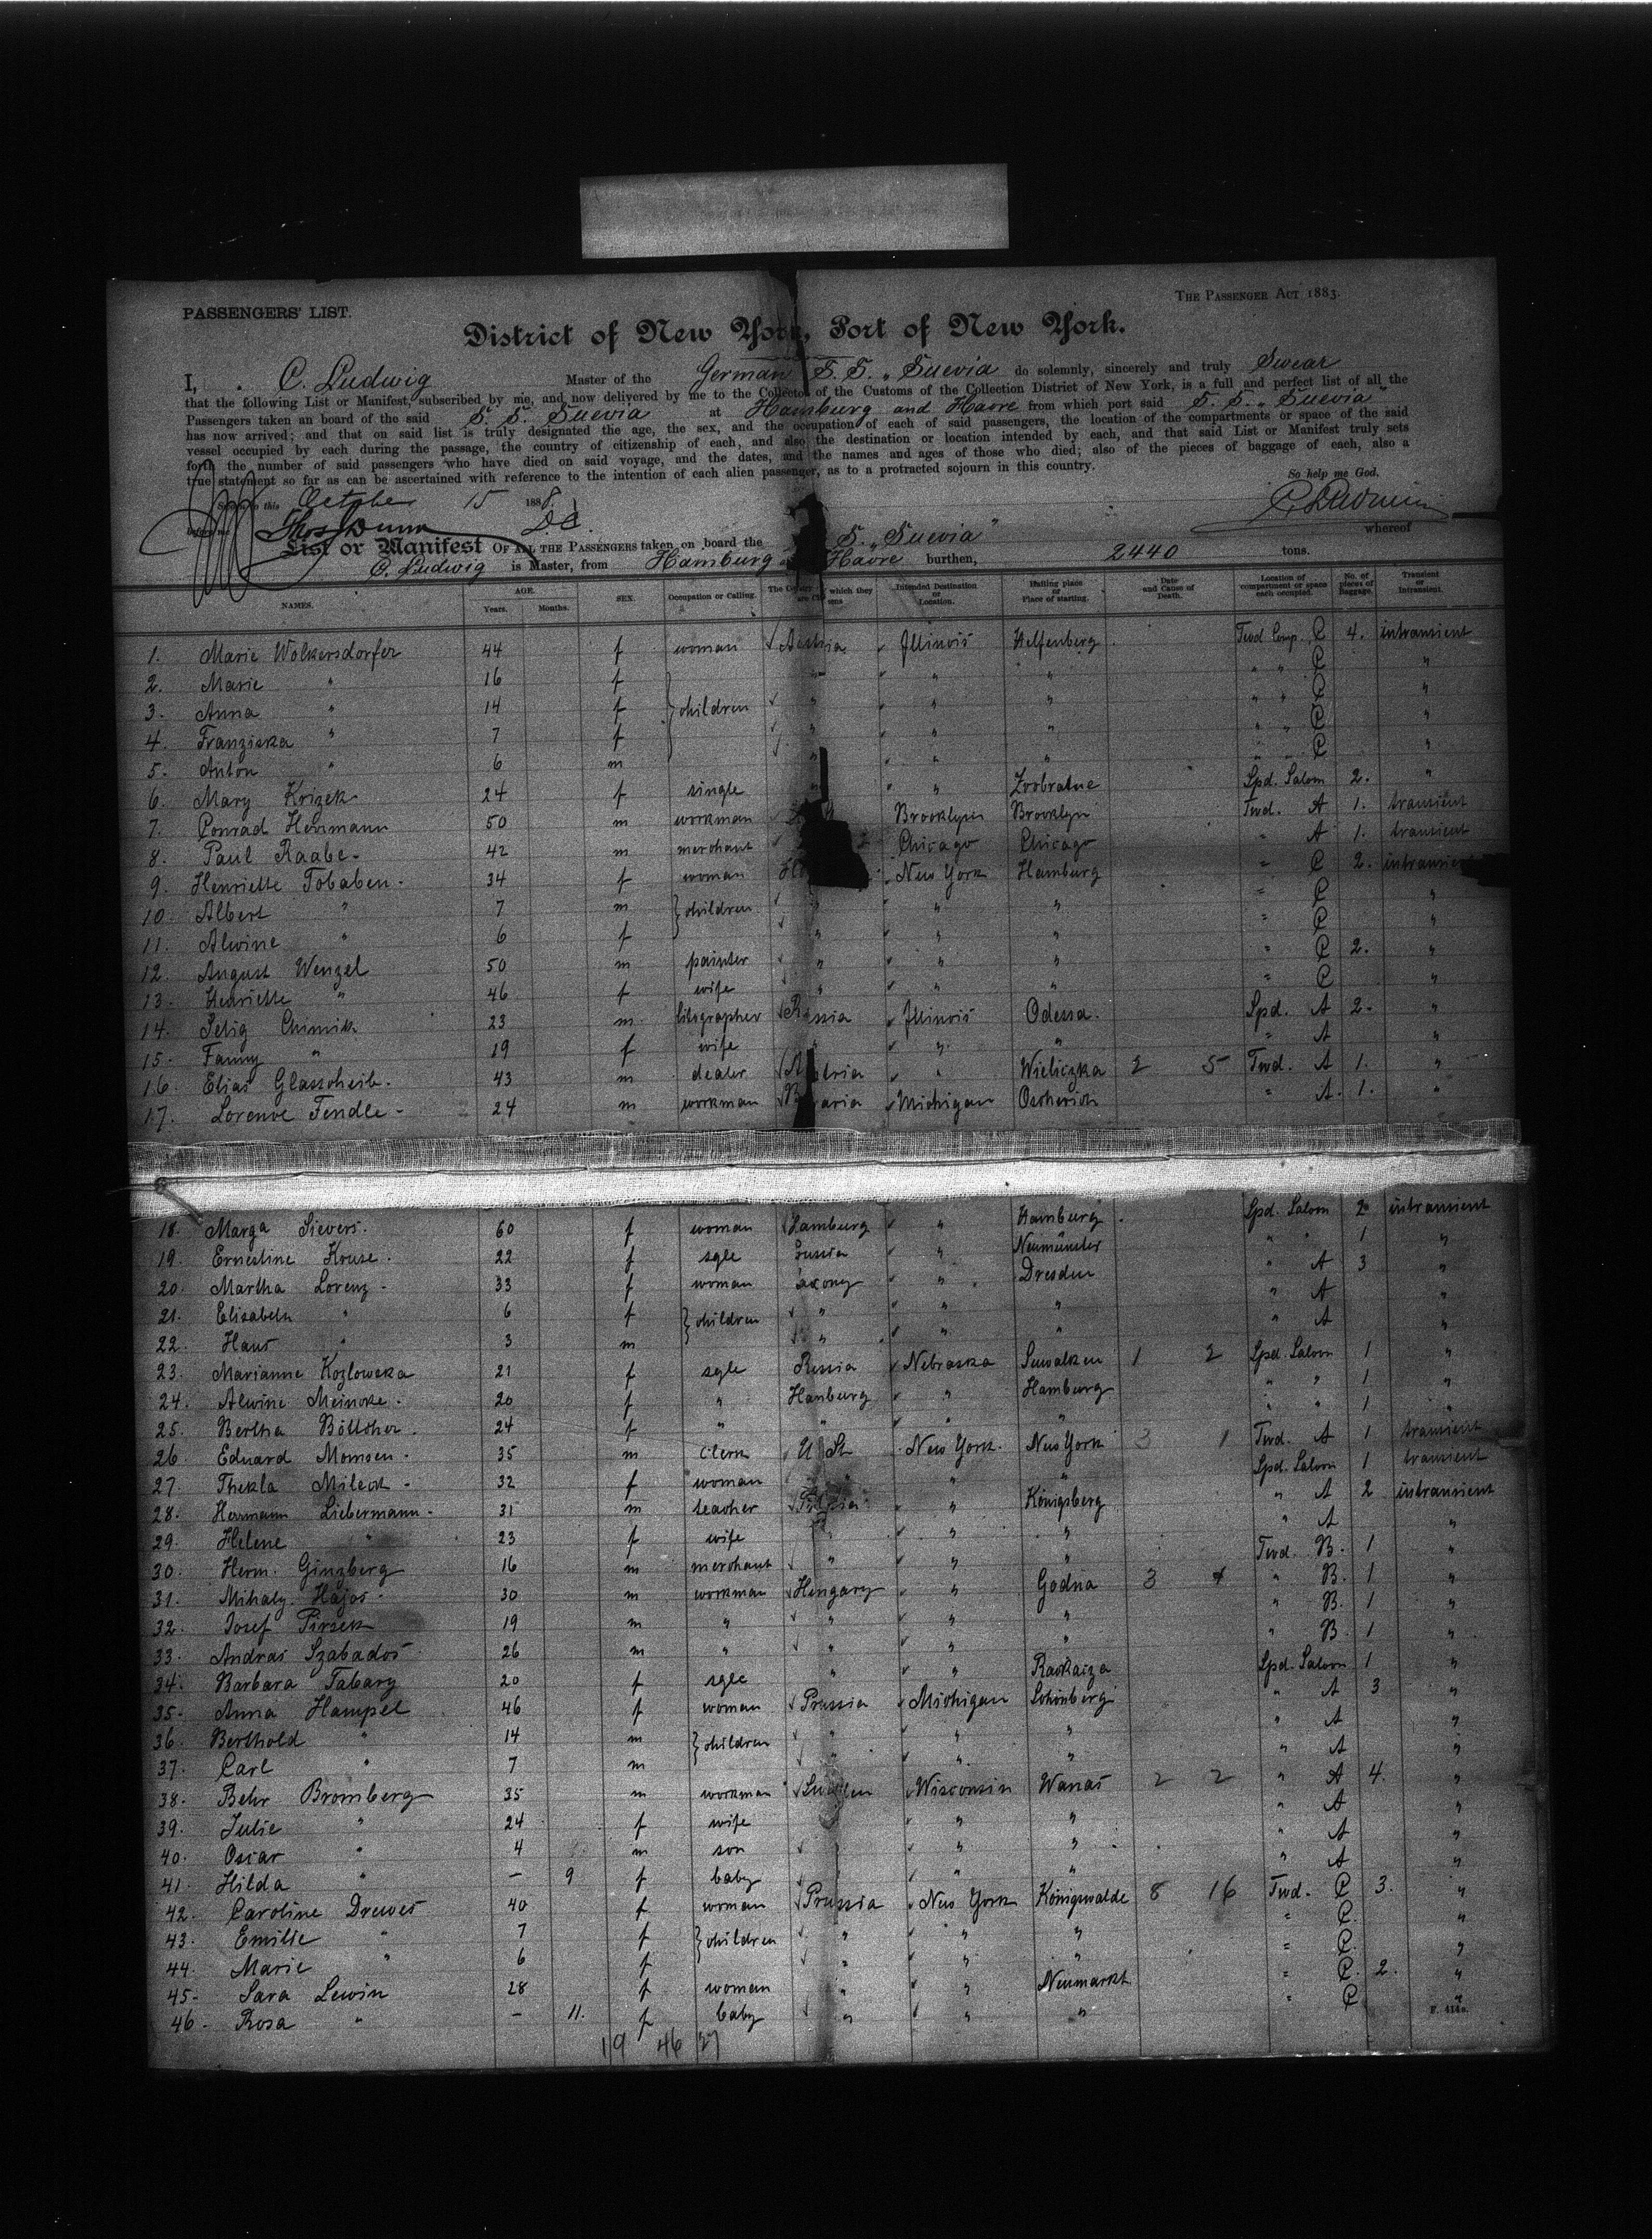 PASSENGERS' LIST.
THE PASSENGER ACT 1883.
District of New York, Port of New York.
I, C. Ludwig Master of the German S. S. „Suevia do solemnly, sincerely and truly Swear
that the following List or Manifest, subscribed by me, and now delivered by me to the Collector of the Customs of the Collection District of New York, is a full and perfect list of all the
Passengers taken on board of the said S. S. Suevia at Hamburg and Havre from which port said S. S. „Suevia"
has now arrived; and that on said list is truly designated the age, the sex, and the occupation of each of said passengers, the location of the compartments or space of the said
vessel occupied by each during the passage, the country of citizenship of each, and also the destination or location intended by each, and that said List or Manifest truly sets
forth the number of said passengers who have died on said voyage, and the dates, and the names and ages of those who died; also of the pieces of baggage of each, also a
true statement so far as can be ascertained with reference to the intention of each alien passenger, as to a protracted sojourn in this country.
So help me God.
Sworn to this October 15 1888
C. Ludwig
before me Thos Dunn D.C.
List or Manifest OF ALL THE PASSENGERS taken on board the S. „Suevia" whereof
C. Ludwig is Master, from Hamburg Havre burthen, 2440 tons.
NAMES. AGE. Years. Months. SEX. Occupation or Calling. The Country which they Intended Destination or Location. Hailing place or Place of starting. Date and Cause of Death. Location of compartment or space each occupied. No. of pieces of Baggage. Transient or Intransient.
1. Marie Wolkersdorfer 44 f woman Austria Illinois Helfenberg Fwd Comp. C 4. intransient
2. Marie " 16 f " " " " " C "
3. Anna " 14 f children " " " " " C "
4. Franziska " 7 f " " " " " C "
5. Anton " 6 m " " " " " C "
6. Mary Krizek 24 f single " " Zvobratne Spd. Saloon 2. "
7. Conrad Herrmann 50 m workman Brooklyn Brooklyn Fwd. A 1. transient
8. Paul Raabe 42 m merchant Chicago Chicago " A 1. transient
9. Henriette Tobaben 34 f woman New York Hamburg " C 2. intransient
10. Albert " 7 m children " " " " C "
11. Alwine " 6 f " " " " C "
12. August Wenzel 50 m painter " " " " C 2. "
13. Henriette " 46 f wife " " " " C "
14. Selig Chimik 23 m litographer Russia Illinois Odessa. Spd. A 2. "
15. Fanny " 19 f wife " " " A "
16. Elias Glassoheib 43 m dealer Austria " Wieliczka 2 5 Fwd. A 1. "
17. Lorenve Fendle 24 m workman Bavaria Michigan Oscherich " A. 1. "
18. Marga Sievers. 60 f woman Hamburg " Hamburg Spd. Saloon 2 intransient
19. Ernestine Kruse 22 f sgle Prussia " Neumünster " " 1 "
20. Martha Lorenz 33 f woman Saxony " Dresden " A 3 "
21. Elisabeth " 6 f children " " " " A "
22. Hans " 3 m " " " " A "
23. Marianne Kozlowska 21 f sgle Russia Nebraska Suwalken 1 2 Spd. Saloon 1 "
24. Alwine Meincke. 20 f " Hamburg " Hamburg " " 1 "
25. Bertha Böttcher 24 f " " " " " " 1 "
26. Eduard Momsen 35 m clerk U St New York. New York 3 1 Fwd. A 1 transient
27. Thekla Milech 32 f woman " " Spd. Saloon 1 transient
28. Herrmann Liebermann 31 m teacher Prussia " Königsberg " A 2 intransient
29. Helene " 23 f wife " " " " A "
30. Herm. Ginzberg 16 m merchant " " " Fwd. B. 1 "
31. Mihaly Hajos 30 m workman Hungary " Godna 3 4 " B. 1 "
32. Josef Pirsek 19 m " " " " " B. 1 "
33. Andras Szabados 26 m " " " " " B. 1 "
34. Barbara Tabary 20 f sgle " " Raokaiza Spd. Saloon 1 "
35. Anna Hampel 46 f woman Prussia Michigan Schönberg " A 3 "
36. Berthold " 14 m children " " " " A "
37. Carl " 7 m " " " " A "
38. Behr Bromberg 35 m workman Sweden Wisconsin Wanas 2 2 " A 4. "
39. Julie " 24 f wife " " " A "
40. Oscar " 4 m son " " " A "
41. Hilda " – 9 f baby " " " A "
42. Caroline Drewes 40 f woman Prussia New York Königswalde 8 16 Fwd. C 3. "
43. Emilie " 7 f children " " " " C. "
44. Marie " 6 f " " " " C. "
45. Sara Lewin 28 f woman " " Neumarkt " C. 2. "
46. Rosa " – 11. f baby " " " " C "
F. 414a.
19 46 27